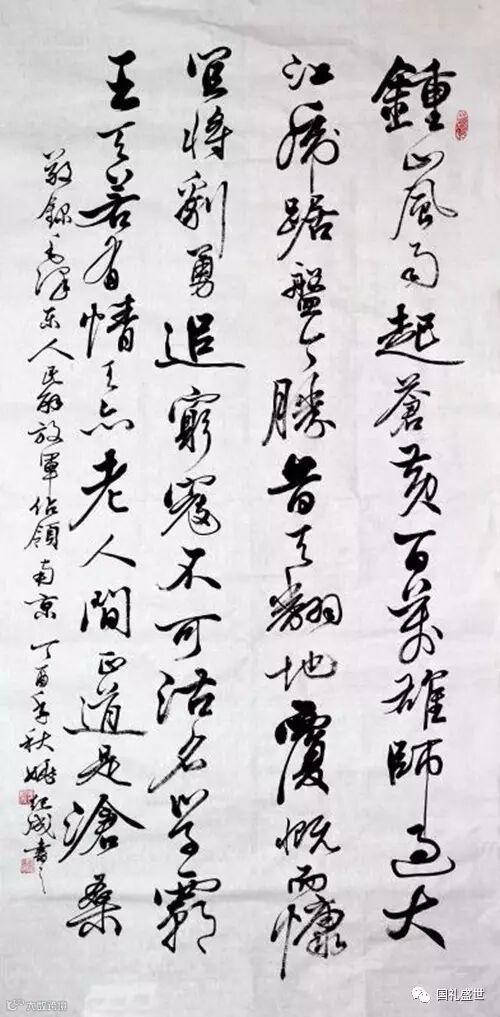 鍾山風雨起蒼黄百萬雄師過大
江虎踞盤今勝昔天翻地覆慨而慷
宜將剩勇追窮寇不可沽名学霸
王天若有情天亦老人間正道是滄桑
敬錄毛澤東人民解放軍佔領南京 丁酉年秋 紀成書之
国礼盛世